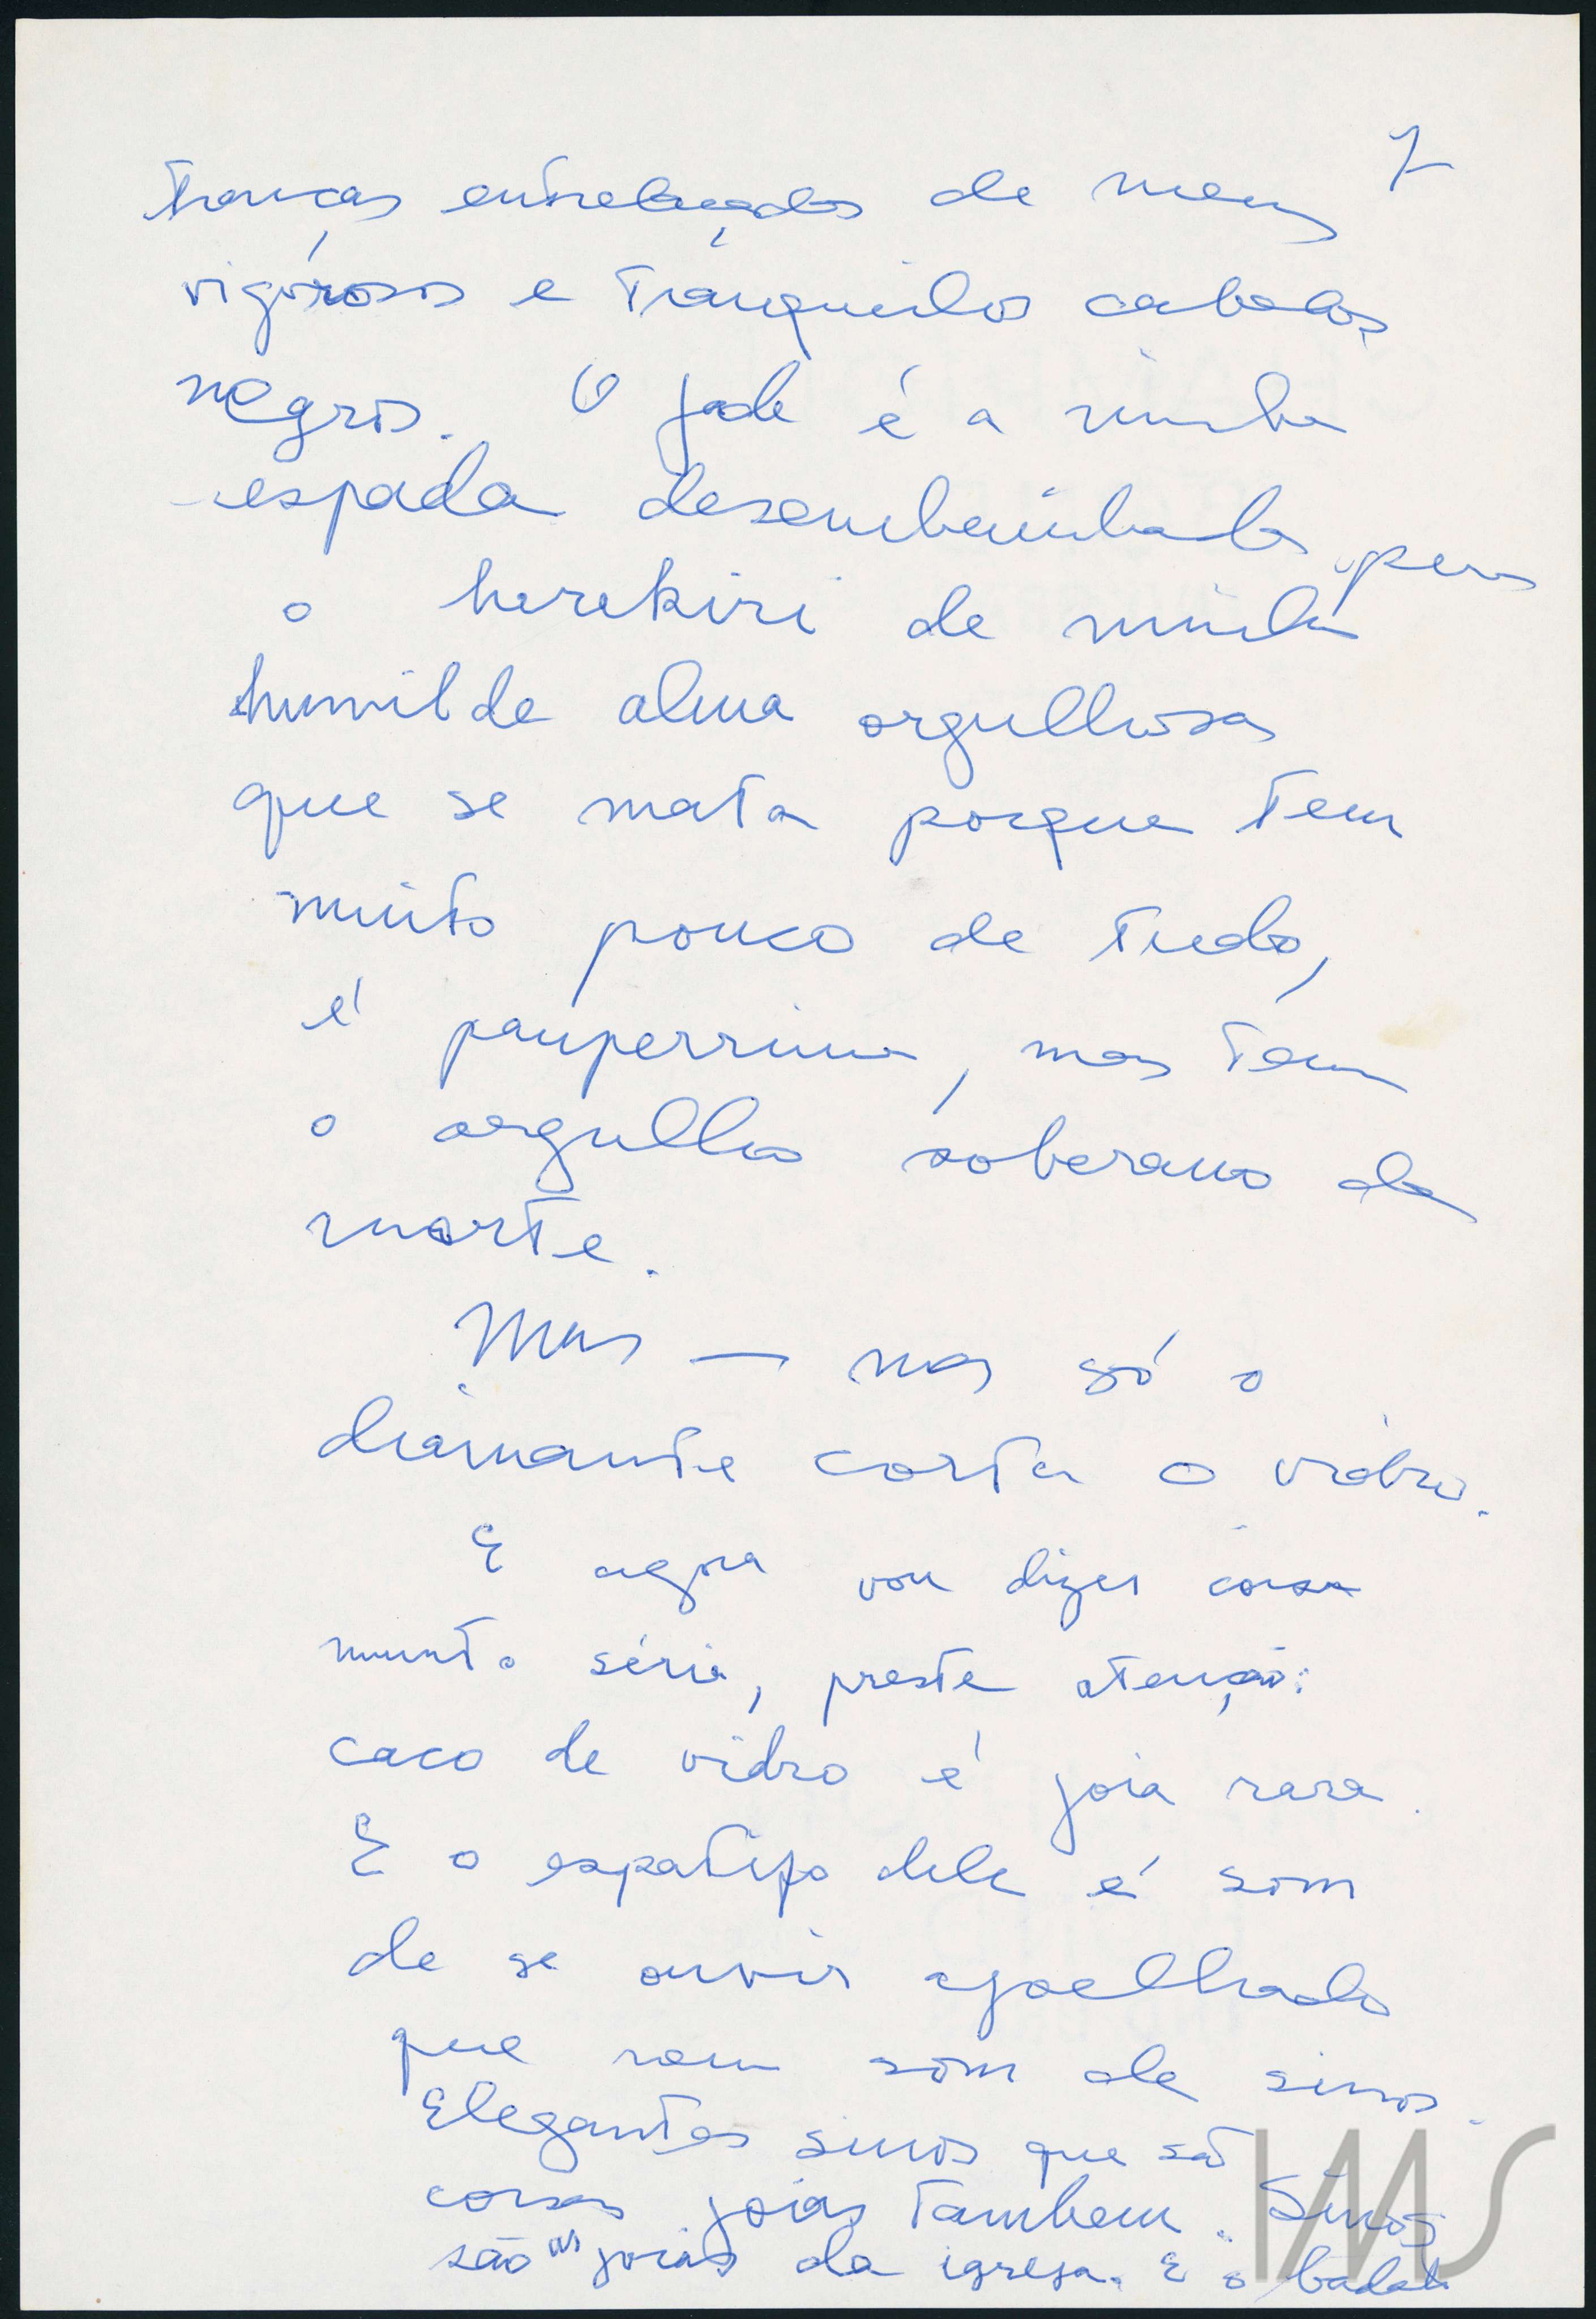 7
tranças entrelaçadas de meus
vigorosos e tranquilos cabelos
negros. O jade é a minha
espada desembainhada para
o harakiri de minha
humilde alma orgulhosa
que se mata porque tem
muito pouco de tudo,
é pauperrima, mas tem
o orgulho soberano da
morte.
Mas — mas só o
diamante corta o vidro.
E agora vou dizer coisa
muito séria, preste atenção:
caco de vidro é joia rara.
E o espatifo dele é som
de se ouvir ajoelhado
que nem som de sinos.
Elegantes sinos que são
coisas joias tambem. Sinos
são as joias da igreja. E o badalo
IMS